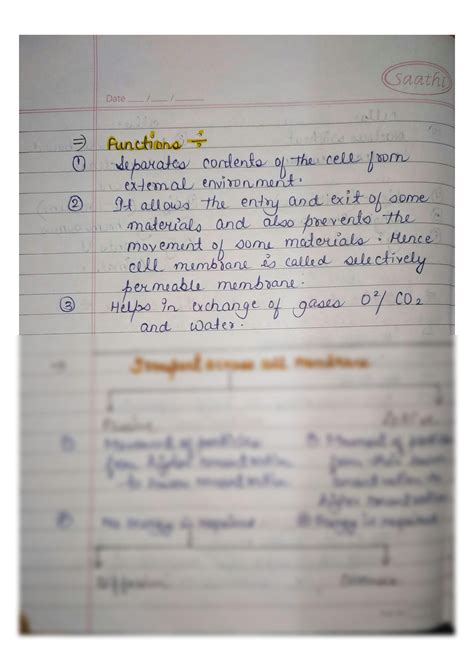 Saathi
Date ___ / ___ / ______
⇒ Functions ÷
① Separates contents of the cell from
external environment.
② It allows the entry and exit of some
materials and also prevents the
movement of some materials. Hence
cell membrane is called selectively
permeable membrane.
③ Helps in exchange of gases O²/ CO₂
and water.
Transport across cell membrane
Passive
Active
① Movement of particles
from higher concentration
to lower concentration
② No energy is required
② Energy is required
Diffusion
Osmosis